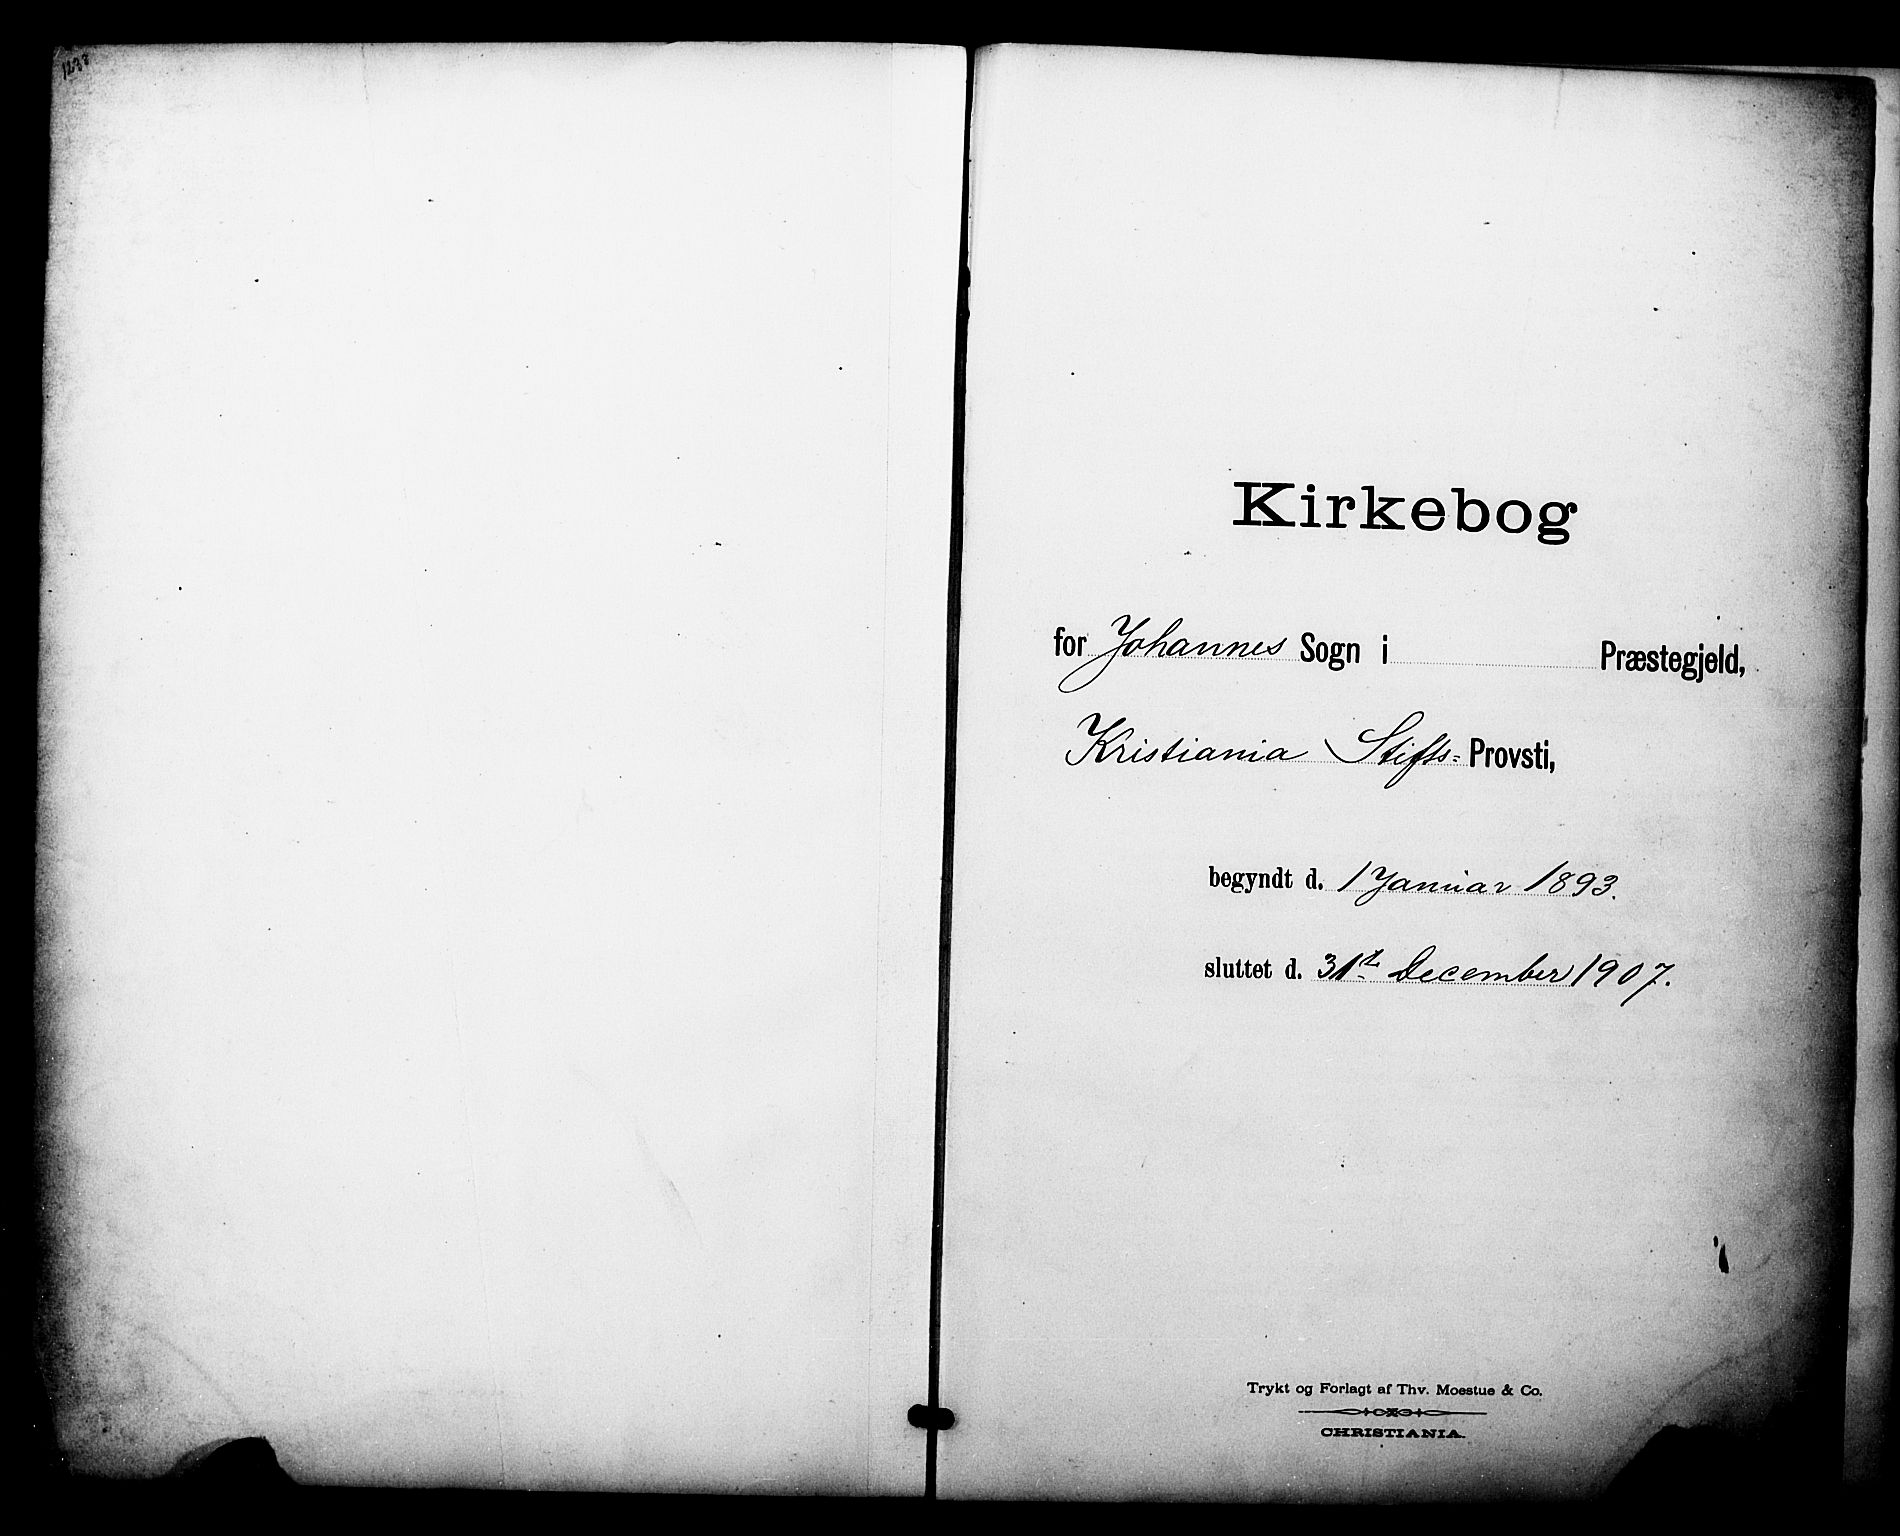 Kirkebog
for Johannes Sogn i Præstegjeld,
Kristiania Stifts- Provsti,
begyndt d. 1 Januar 1893.
sluttet d. 31te December 1907.
Trykt og Forlagt af Thv. Moestue & Co.
CHRISTIANIA.